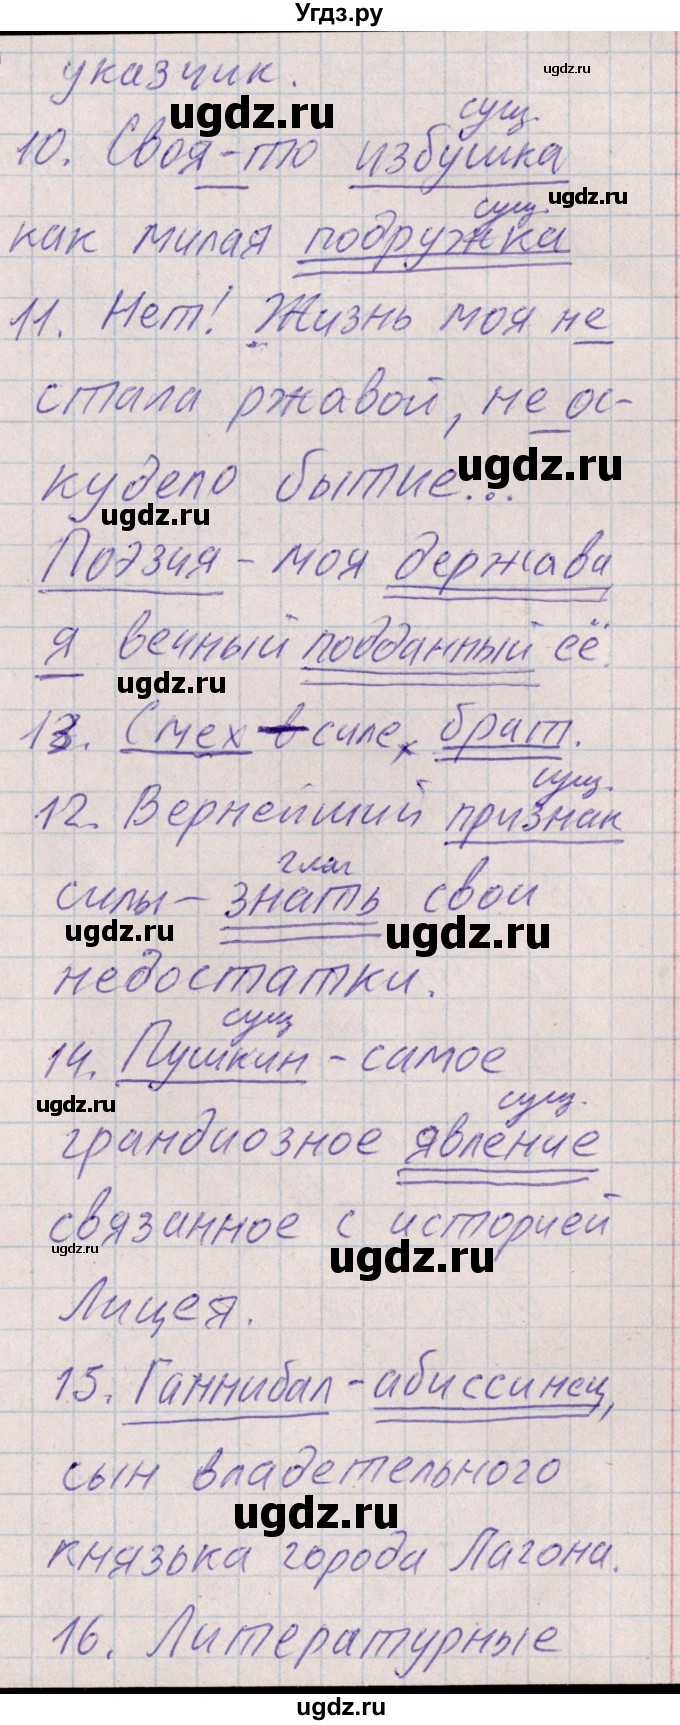 Угдз.ру
указчик.
ugdz.ru
ugdz.ru
сущ.
10. Своя-то избушка
ugdz.ru
сущ.
как милая подружка
11. Нет! Жизнь моя не
стала ржавой, не ос-
ugdz.ru
кудело бытие...
ugdz.ru
Поэзия - моя держава
я вечный подданный её.
ugdz.ru
13. Смех силе брат.
сущ.
12. Вернейший признак
глаг
силы - знать свои
ugdz.ru
ugdz.ru
недостатки.
сущ
14. Пушкин - самое
ugdz.ru
сущ.
грандиозное явление
связанное с историей
ugdz.ru
ugdz.ru
Лицея.
15. Ганнибал - абиссинец,
сын владетельного
ugdz.ru
князька города Лагона.
16. Литературные
ugdz.ru
ugdz.ru